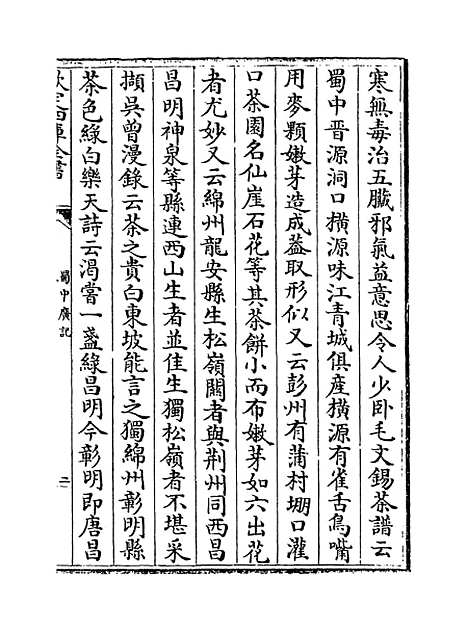 寒無毒治五臓邪氣益意思令人少卧毛文錫茶譜云
蜀中晋源洞口横源味江青城俱産横源有雀舌鳥嘴
用麥顆嫩芽造成葢取形似又云彭州有蒲村堋口灌
口茶園名仙崖石花等其茶餅小而布嫩芽如六出花
者尤妙又云綿州龍安縣生松嶺闗者與荆州同西昌
昌明神泉等縣連西山生者並佳生獨松嶺者不堪采
擷吳曾漫錄云茶之貴白東坡能言之獨綿州彰明縣
茶色綠白樂天詩云渴嘗一盞綠昌明今彰明即唐昌
欽定四庫全書
蜀中廣記
二